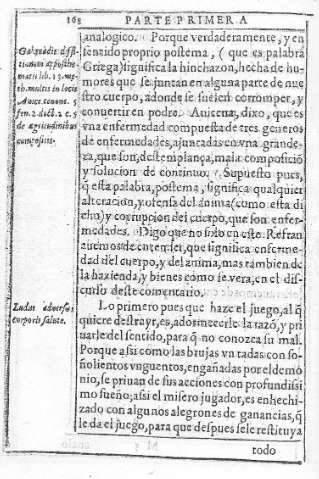 168 PARTE PRIMERA
analogico. Porque verdaderamente, y en
sentido proprio postema, ( que es palabra
Griega) significa la hinchazon, hecha de hu-
mores que se juntan en alguna parte de nue
stro cuerpo, adonde se suelen corromper, y
conuertir en podre. Auicena, dixo, que es
vna enfermedad compuesta de tres generos
de enfermedades, ajuntadas en vna grande-
za, que son, destemplança, mala composiciõ
y solucion de continuo. Supuesto pues,
q̃ esta palabra, postema, significa qualquier
alteracion, y ofensa del anima (como esta di
cho) y corrupcion del cuerpo, que son enfer-
medades. Digo que no solo en este Refran
auemos de entender, que significa enferme-
dad del cuerpo, y del anima, mas tambien de
la hazienda, y bienes como se vera, en el dis-
curso deste comentario.
Lo primero pues que haze el juego, al q̃
quiere destruyr, es, adormecerle la razõ, y pri
uarle del sentido, para q̃ no conozca su mal.
Porque assi como las brujas vntadas con so-
ñolientos vnguentos, engañadas por el demo
nio, se priuan de sus acciones con profundissi
mo sueño; assi el misero jugador, es enhechi-
zado con algunos alegrones de ganancias, q̃
le da el juego, para que despues se le restituya
todo
Gal. &
tionum
matis lib. 13. me-
th. multis in locis
Auice.
fen. 2. doct. 2. c. 5
de egritudinibus
compositis.
Ludus aduersus
corporis salute.